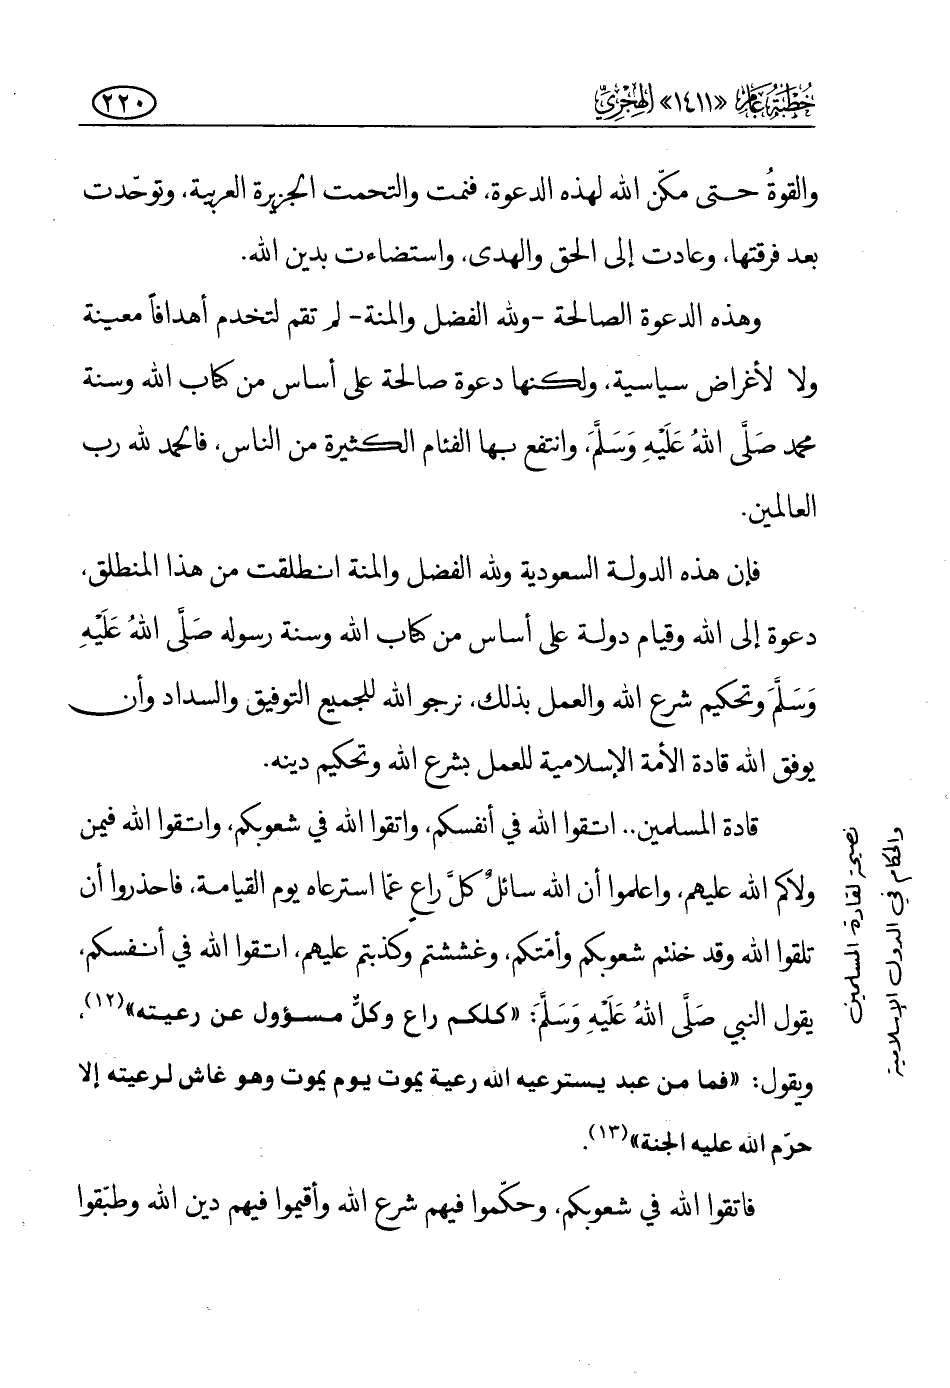 خُطْبَةُ عَامِ «١٤١١» الهِجْرِيِّ
٢٢٠
والقوةُ حتى مكّن الله لهذه الدعوة، فنمت والتحمت الجزيرة العربية، وتوحّدت
بعد فرقتها، وعادت إلى الحق والهدى، واستضاءت بدين الله.
وهذه الدعوة الصالحة -ولله الفضل والمنة- لم تقم لتخدم أهدافاً معينة
ولا لأغراض سياسية، ولكنها دعوة صالحة على أساس من كتاب الله وسنة
محمد صَلَّى اللهُ عَلَيْهِ وَسَلَّمَ، وانتفع بها الفئام الكثيرة من الناس، فالحمد لله رب
العالمين.
فإن هذه الدولة السعودية ولله الفضل والمنة انطلقت من هذا المنطلق،
دعوة إلى الله وقيام دولة على أساس من كتاب الله وسنة رسوله صَلَّى اللهُ عَلَيْهِ
وَسَلَّمَ وتحكيم شرع الله والعمل بذلك، نرجو الله للجميع التوفيق والسداد وأن
يوفق الله قادة الأمة الإسلامية للعمل بشرع الله وتحكيم دينه.
قادة المسلمين.. اتقوا الله في أنفسكم، واتقوا الله في شعوبكم، واتقوا الله فيمن
ولاكم الله عليهم، واعلموا أن الله سائلٌ كلَّ راعٍ عمّا استرعاه يوم القيامة، فاحذروا أن
تلقوا الله وقد خنتم شعوبكم وأمّتكم، وغششتم وكذبتم عليهم، اتقوا الله في أنفسكم،
يقول النبي صَلَّى اللهُ عَلَيْهِ وَسَلَّمَ: «كلكم راع وكلٌّ مسؤول عن رعيته»(١٢)،
ويقول: «فما من عبد يسترعيه الله رعية يموت يوم يموت وهو غاش لرعيته إلا
حرّم الله عليه الجنة»(١٣).
فاتقوا الله في شعوبكم، وحكّموا فيهم شرع الله وأقيموا فيهم دين الله وطبّقوا
نصيحة لقادة المسلمين
والحكام في الدول الإسلامية